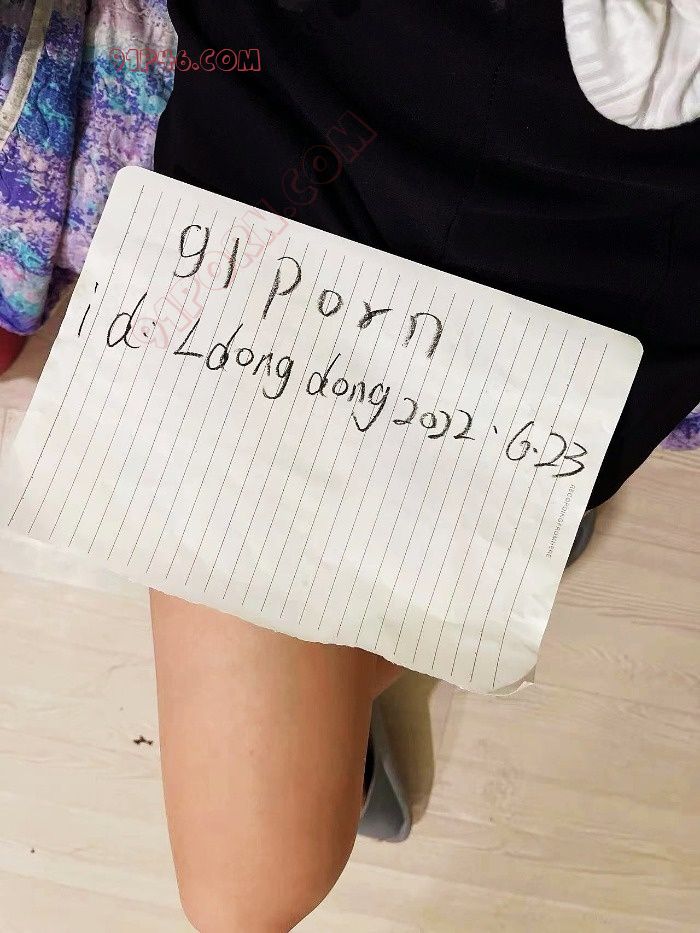 91P46.COM
91PORN.COM
91 porn
id. Ldong dong 2022.6.23